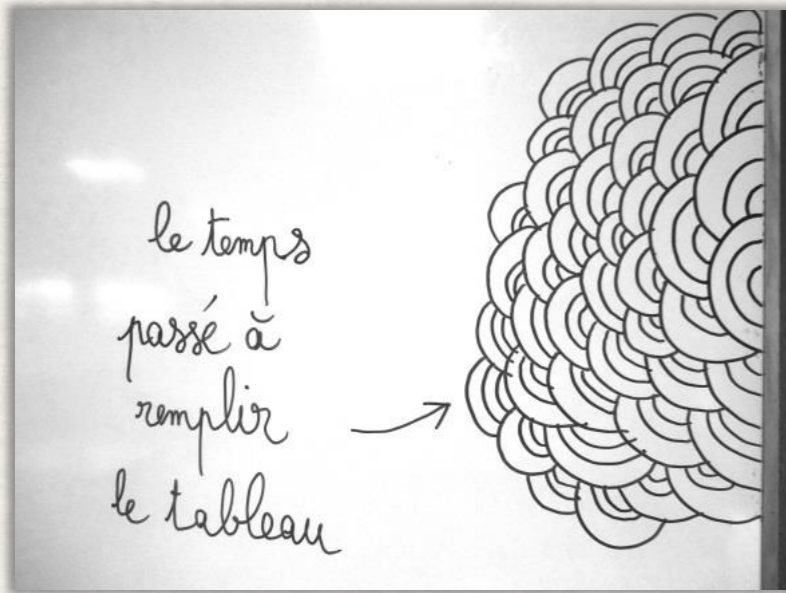 le temps
passé à
remplir
le tableau